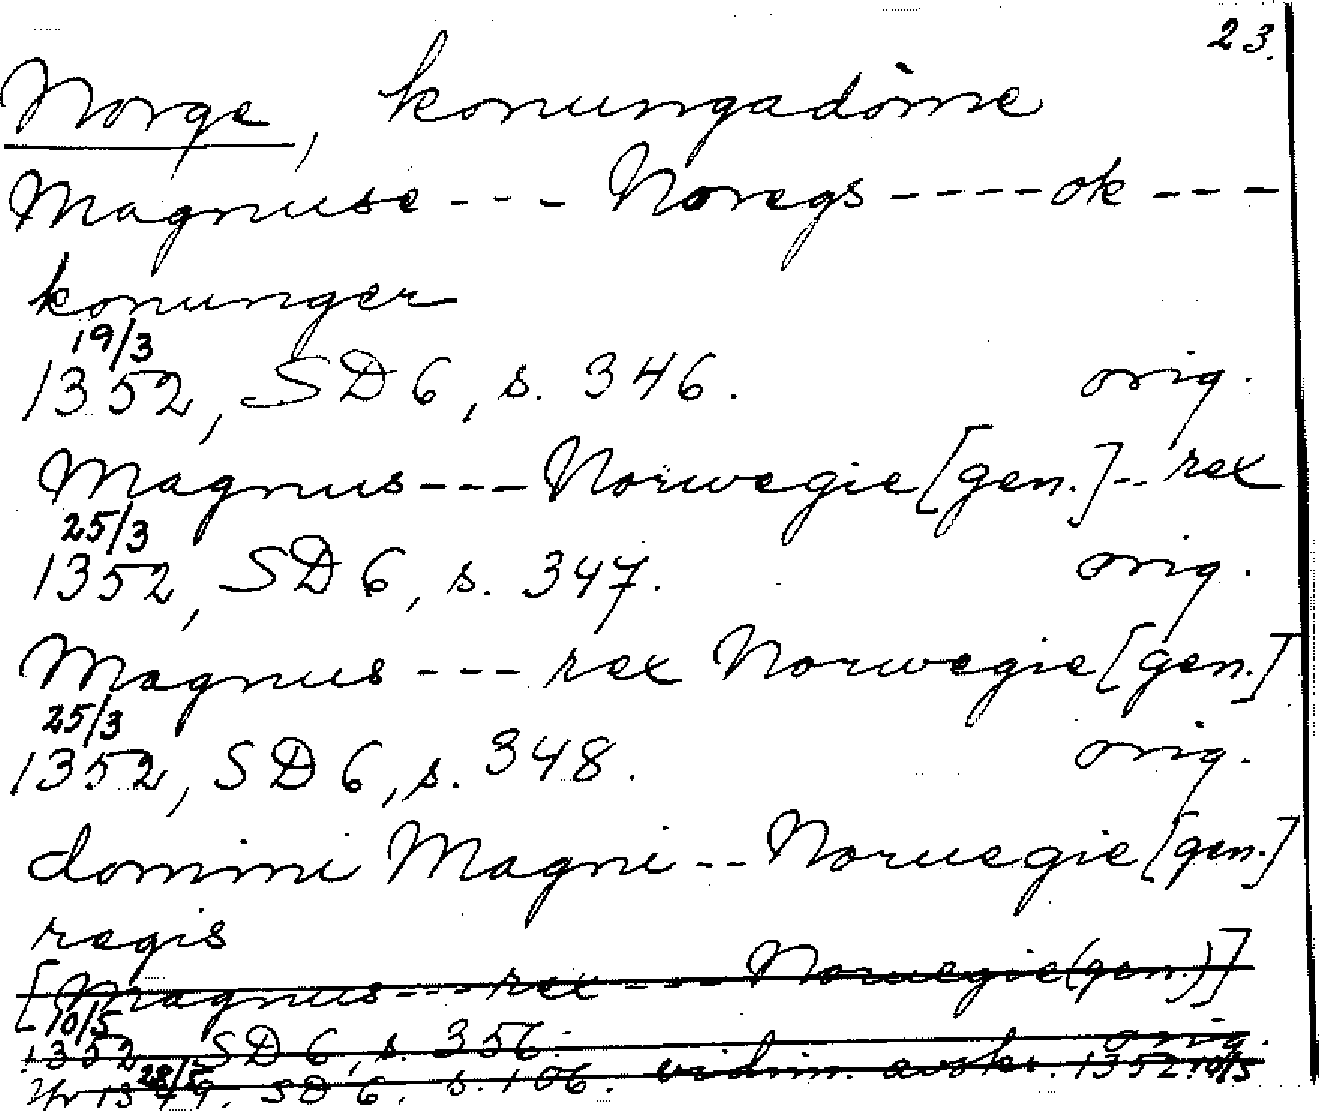 23.
Norge, konungadöme
Magnuse --- Noregs ---- ok ---
konunger
19/3
1352, SD 6, s. 346. orig.
Magnus --- Norwegie [gen.] -- rex
25/3
1352, SD 6, s. 347. orig.
Magnus --- rex Norwegie [gen.]
25/3
1352, SD 6, s. 348. orig.
domini Magni -- Noruegie [gen.]
regis
[Magnus --- rex --- Noruegie (gen.)]
10/5
1352 SD 6, s. 356. orig.
28/5
1349. SD 6. s. 106. vidim. avskr. 1352 10/5